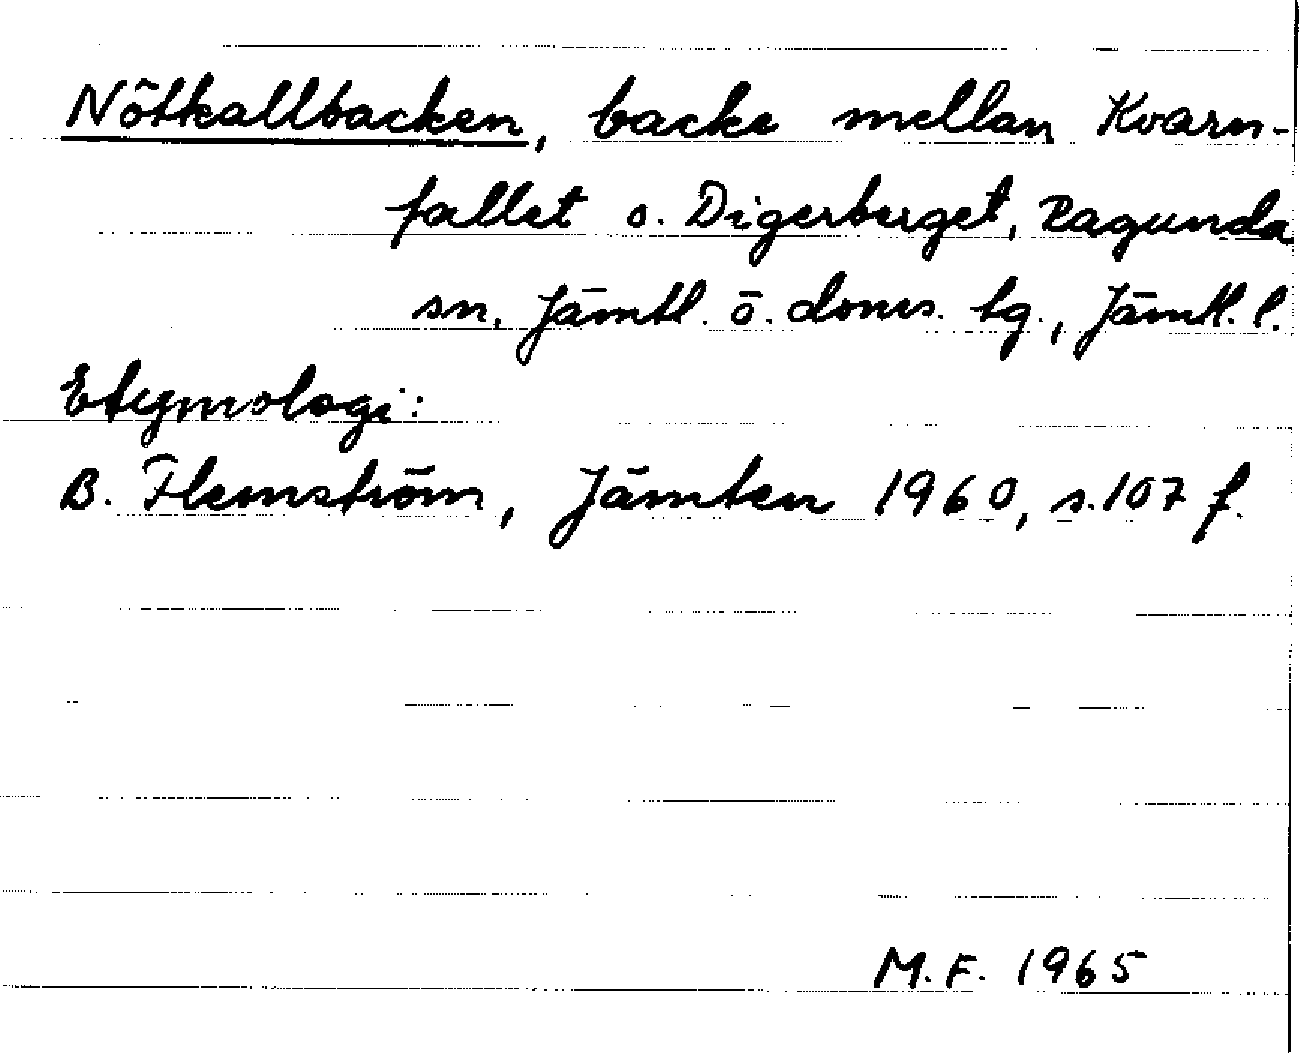 Nötkallbacken, backe mellan Kvarn-
fallet o. Digerberget, Ragunda
sn, Jämtl. ö. doms. tg., Jämtl. l.
Etymologi:
B. Flemström, Jämten 1960, s. 107 f.
M.F. 1965